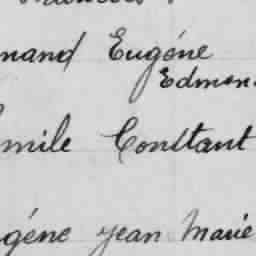 nand Eugéne
Edmon
mile Constant
géne Jean Marie